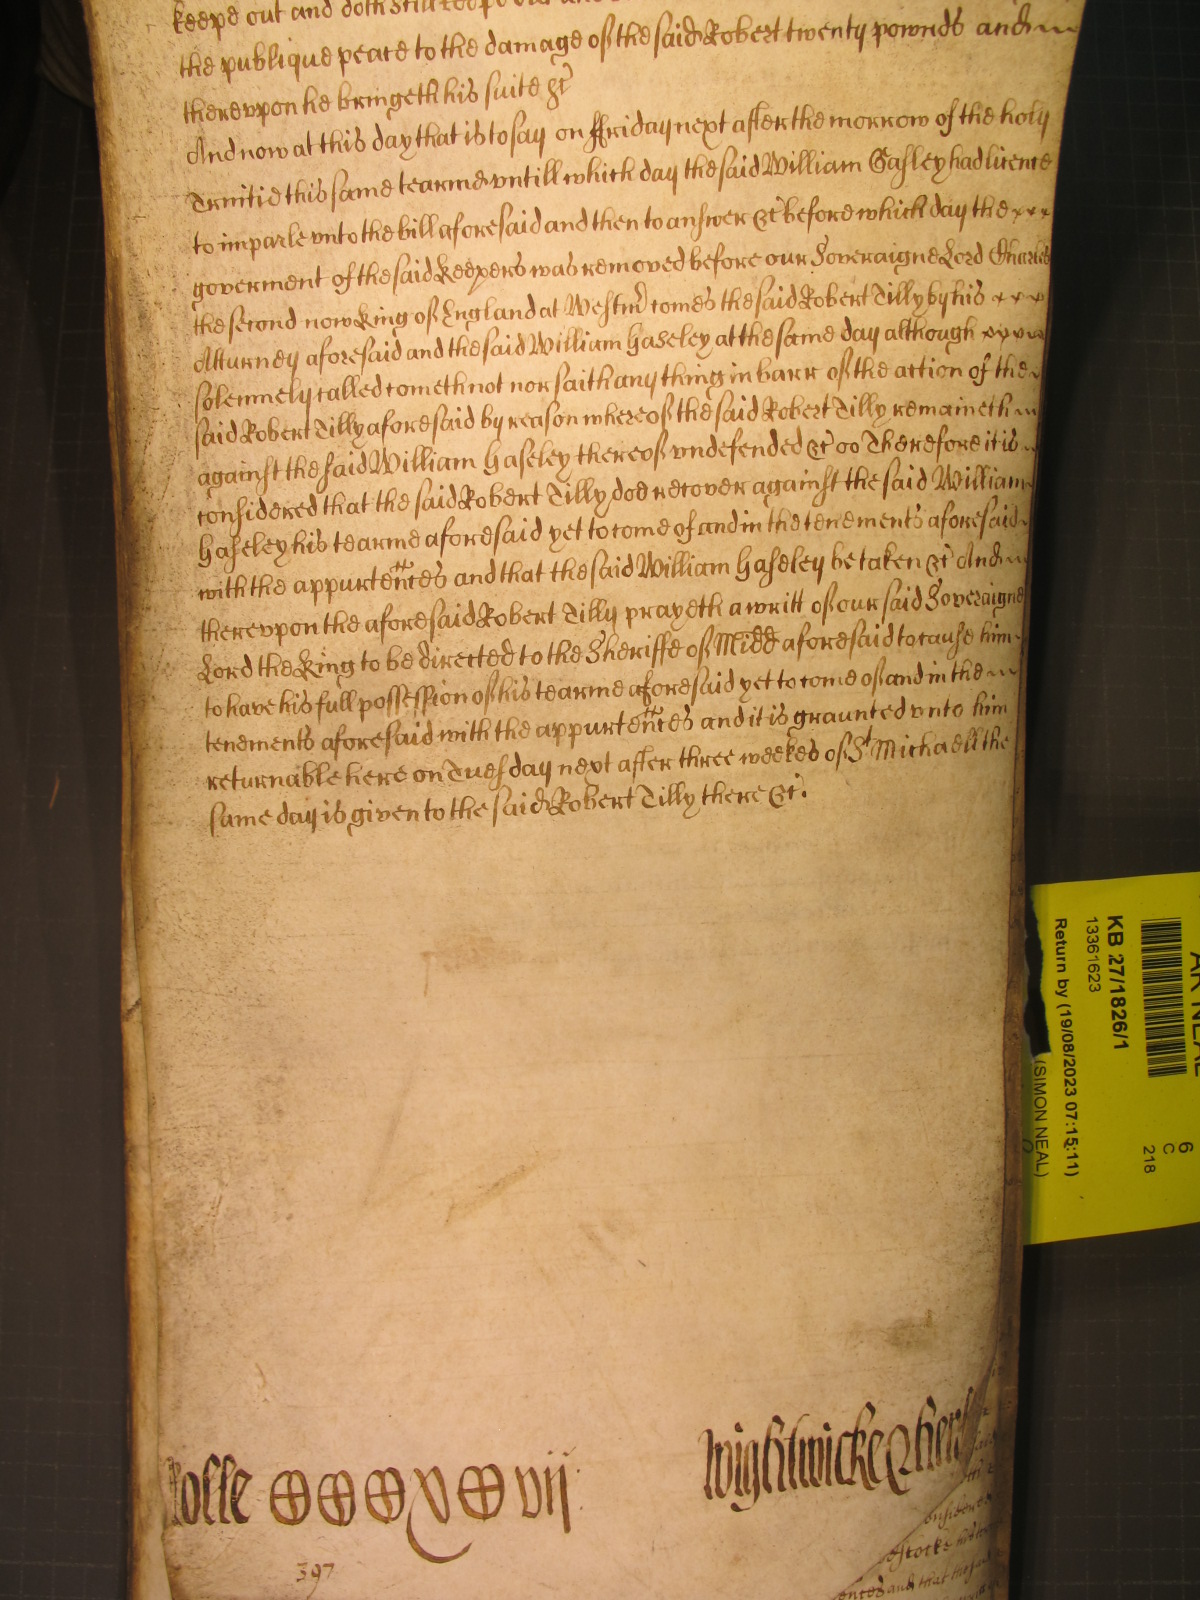 keepe out and doth still keepe
the publique peace to the damage of the said Robert twenty pownds and
therevpon he bringeth his suite &c
And now at this day that is to say on ffriday next after the morrow of the holy
Trinitie this same tearme vntill which day the said William Hasley had licence
to imparle vnto the bill aforesaid and then to answer &c before which day the
goverment of the said Keepers was removed before our Soveraigne Lord Charles
the second now King of England at Westmr comes the said Robert Tilly by his
Atturney aforesaid and the said William Haseley at the same day although
solemnely called cometh not nor saith any thing in barr of the action of the
said Robert Tilly aforesaid by reason whereof the said Robert Tilly remaineth
against the said William Haseley thereof vndefended &c oo Therefore it is
considered that the said Robert Tilly doe recover against the said William
Haseley his tearme aforesaid yet to come of and in the tenements aforesaid
with the appurtences and that the said William Haseley be taken &c And
therevpon the aforesaid Robert Tilly prayeth a writt of our said Soveraigne
Lord the King to be directed to the Sheriffe of Midd aforesaid to cause him
to have his full possession of his tearme aforesaid yet to come of and in the
tenements aforesaid with the appurtences and it is graunted vnto him
returnable here on Tuesday next after three weekes of St Michaell the
same day is given to the said Robert Tilly there &c.
Rolle CCCXC vii
Wightwicke
397
onsidered
estocke
ences and that the said
KB 27/1826/1
13361623
Return by (19/08/2023 07:15:11)
(SIMON NEAL)
6
C
218